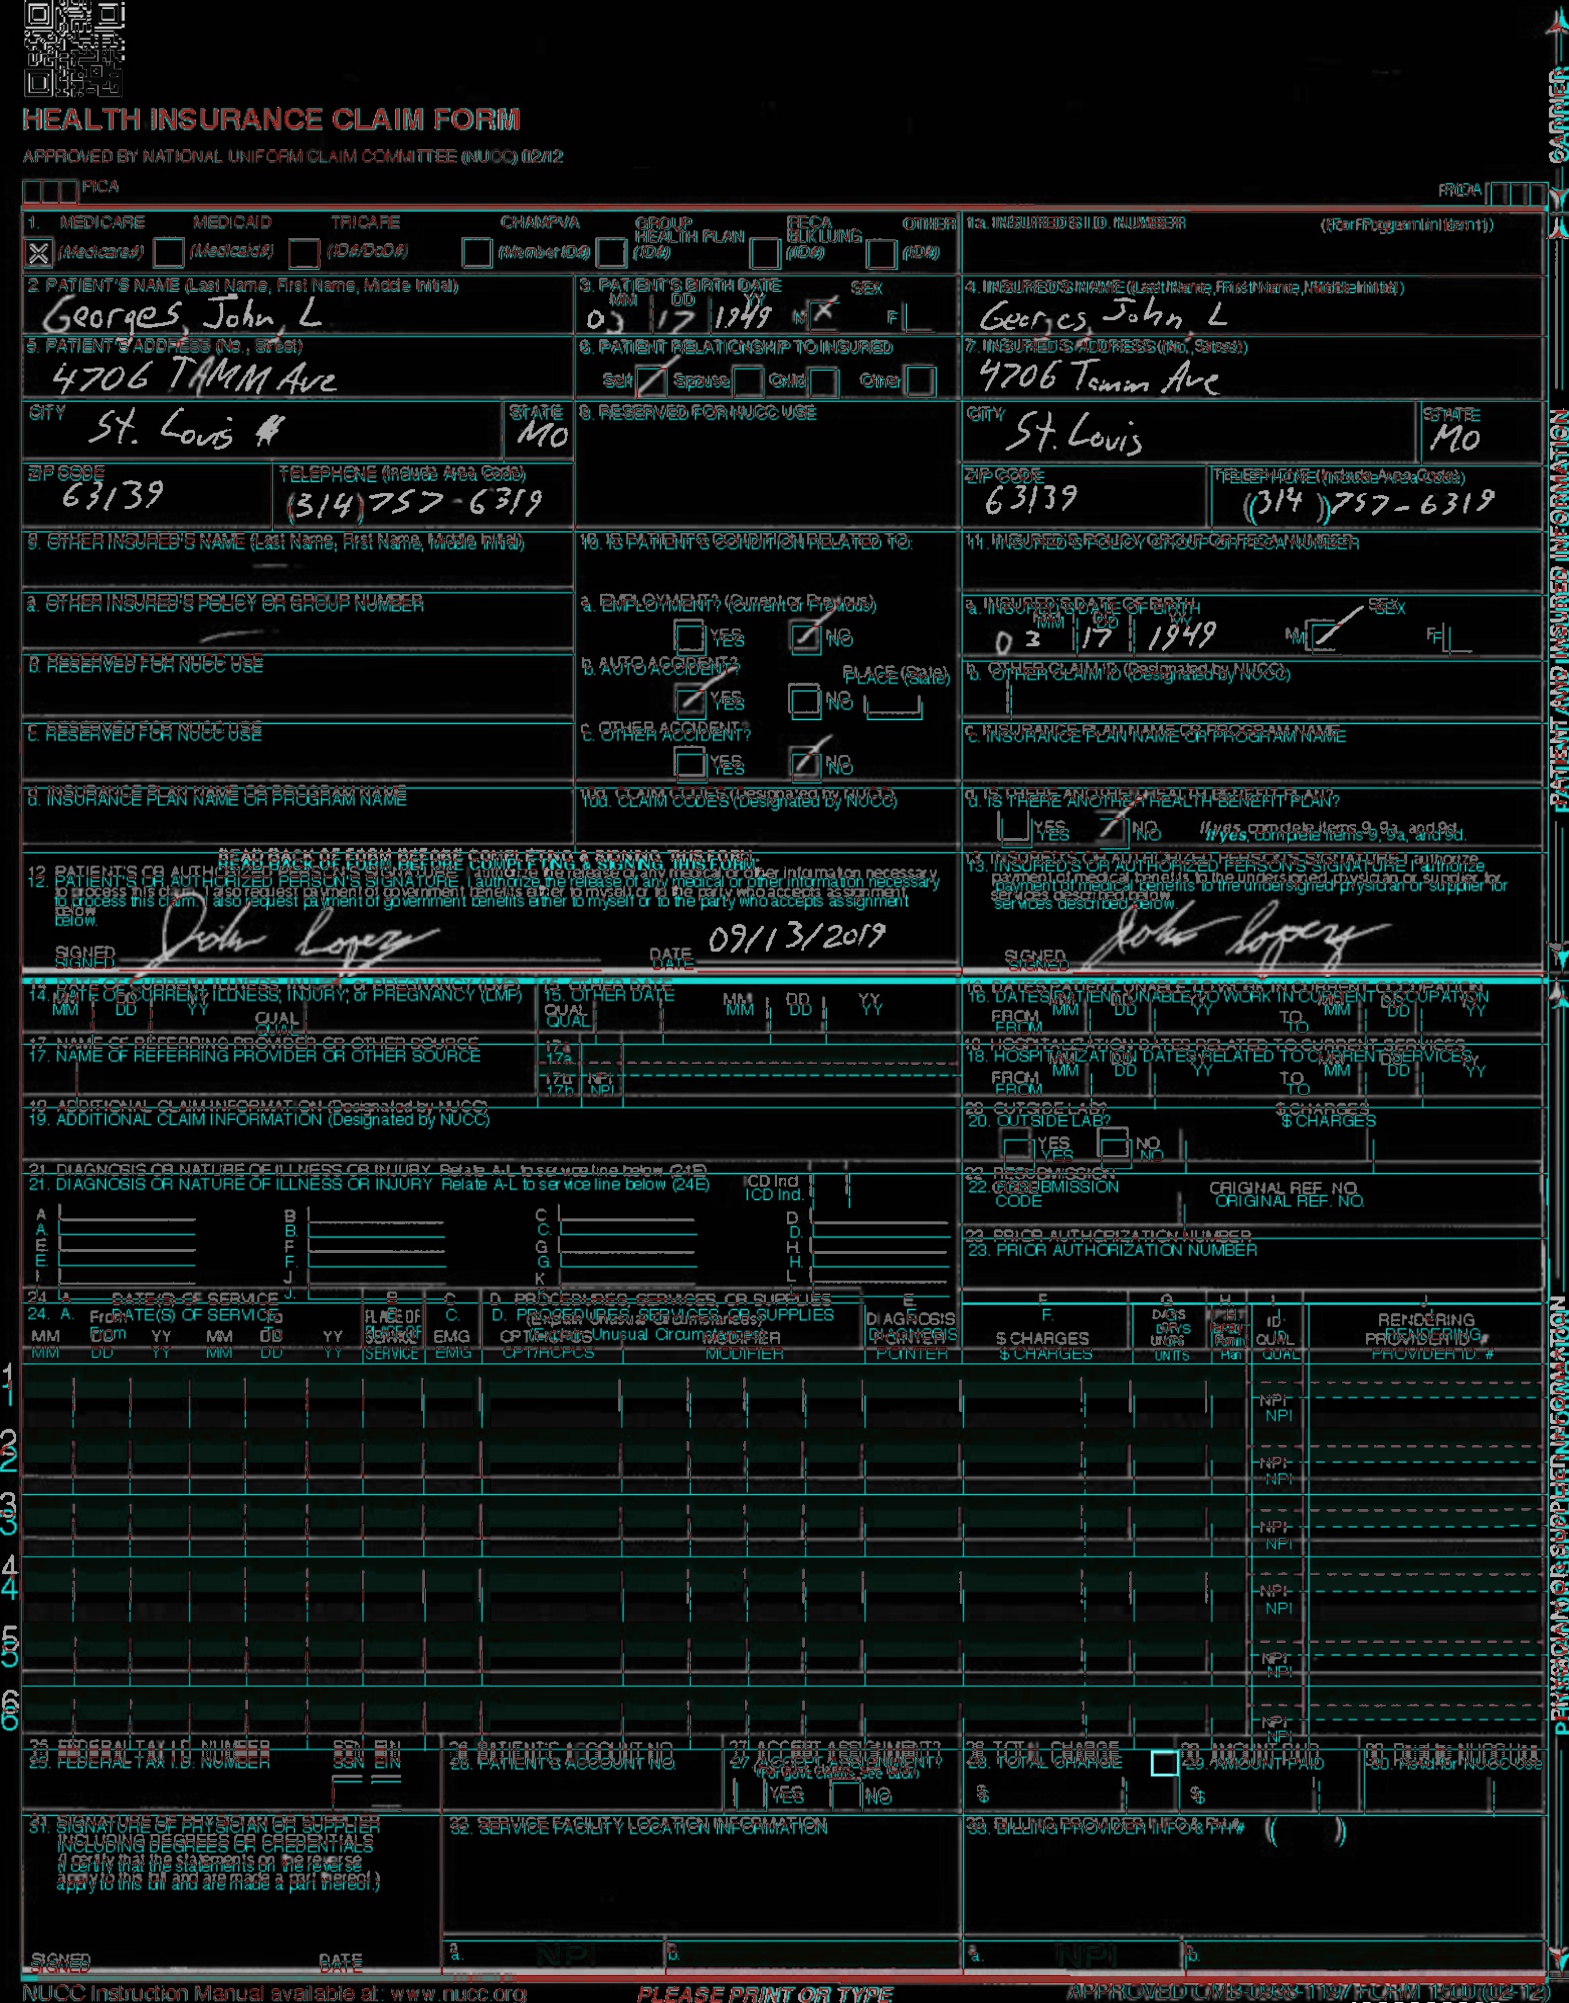 HEALTH INSURANCE CLAIM FORM
APPROVED BY NATIONAL UNIFORM CLAIM COMMITTEE (NUCC) 02/12
PICA
PICA
CARRIER
1. MEDICARE MEDICAID TRICARE CHAMPVA GROUP HEALTH PLAN FECA BLK LUNG OTHER
X (Medicare#) (Medicaid#) (ID#/DoD#) (Member ID#) (ID#) (ID#) (ID#)
1a. INSURED'S I.D. NUMBER (For Program in Item 1)
2. PATIENT'S NAME (Last Name, First Name, Middle Initial)
Georges, John, L
3. PATIENT'S BIRTH DATE SEX
MM DD YY
03 17 1949 M X F
4. INSURED'S NAME (Last Name, First Name, Middle Initial)
Georges, John, L
5. PATIENT'S ADDRESS (No., Street)
4706 TAMM Ave
6. PATIENT RELATIONSHIP TO INSURED
Self Spouse Child Other
7. INSURED'S ADDRESS (No., Street)
4706 Tamm Ave
CITY STATE
St. Louis MO
8. RESERVED FOR NUCC USE
CITY STATE
St. Louis MO
ZIP CODE TELEPHONE (Include Area Code)
63139 (314) 757-6319
ZIP CODE TELEPHONE (Include Area Code)
63139 (314) 757-6319
9. OTHER INSURED'S NAME (Last Name, First Name, Middle Initial)
10. IS PATIENT'S CONDITION RELATED TO:
11. INSURED'S POLICY GROUP OR FECA NUMBER
a. OTHER INSURED'S POLICY OR GROUP NUMBER
a. EMPLOYMENT? (Current or Previous)
YES NO
a. INSURED'S DATE OF BIRTH SEX
MM DD YY
03 17 1949 M F
b. RESERVED FOR NUCC USE
b. AUTO ACCIDENT? PLACE (State)
YES NO
b. OTHER CLAIM ID (Designated by NUCC)
c. RESERVED FOR NUCC USE
c. OTHER ACCIDENT?
YES NO
c. INSURANCE PLAN NAME OR PROGRAM NAME
d. INSURANCE PLAN NAME OR PROGRAM NAME
10d. CLAIM CODES (Designated by NUCC)
d. IS THERE ANOTHER HEALTH BENEFIT PLAN?
YES NO If yes, complete items 9, 9a, and 9d.
PATIENT AND INSURED INFORMATION
READ BACK OF FORM BEFORE COMPLETING & SIGNING THIS FORM.
12. PATIENT'S OR AUTHORIZED PERSON'S SIGNATURE I authorize the release of any medical or other information necessary
to process this claim. I also request payment of government benefits either to myself or to the party who accepts assignment
below.
SIGNED John Lopez DATE 09/13/2019
13. INSURED'S OR AUTHORIZED PERSON'S SIGNATURE I authorize
payment of medical benefits to the undersigned physician or supplier for
services described below.
SIGNED John Lopez
14. DATE OF CURRENT ILLNESS, INJURY, or PREGNANCY (LMP)
MM DD YY QUAL.
15. OTHER DATE
QUAL. MM DD YY
16. DATES PATIENT UNABLE TO WORK IN CURRENT OCCUPATION
FROM MM DD YY TO MM DD YY
17. NAME OF REFERRING PROVIDER OR OTHER SOURCE
17a.
17b. NPI
18. HOSPITALIZATION DATES RELATED TO CURRENT SERVICES
FROM MM DD YY TO MM DD YY
19. ADDITIONAL CLAIM INFORMATION (Designated by NUCC)
20. OUTSIDE LAB? $ CHARGES
YES NO
21. DIAGNOSIS OR NATURE OF ILLNESS OR INJURY Relate A-L to service line below (24E) ICD Ind.
A. B. C. D.
E. F. G. H.
I. J. K. L.
22. RESUBMISSION CODE ORIGINAL REF. NO.
23. PRIOR AUTHORIZATION NUMBER
24. A. DATE(S) OF SERVICE
From To
MM DD YY MM DD YY
B. PLACE OF SERVICE
C. EMG
D. PROCEDURES, SERVICES, OR SUPPLIES
(Explain Unusual Circumstances)
CPT/HCPCS MODIFIER
E. DIAGNOSIS POINTER
F. $ CHARGES
G. DAYS OR UNITS
H. EPSDT Family Plan
I. ID. QUAL.
J. RENDERING PROVIDER ID. #
1 NPI
2 NPI
3 NPI
4 NPI
5 NPI
6 NPI
PHYSICIAN OR SUPPLIER INFORMATION
25. FEDERAL TAX I.D. NUMBER SSN EIN
26. PATIENT'S ACCOUNT NO.
27. ACCEPT ASSIGNMENT?
(For govt. claims, see back)
YES NO
28. TOTAL CHARGE
$
29. AMOUNT PAID
$
30. Rsvd for NUCC Use
31. SIGNATURE OF PHYSICIAN OR SUPPLIER
INCLUDING DEGREES OR CREDENTIALS
(I certify that the statements on the reverse
apply to this bill and are made a part thereof.)
SIGNED DATE
32. SERVICE FACILITY LOCATION INFORMATION
a. NPI b.
33. BILLING PROVIDER INFO & PH # ( )
a. NPI b.
NUCC Instruction Manual available at: www.nucc.org
PLEASE PRINT OR TYPE
APPROVED OMB-0938-1197 FORM 1500 (02-12)